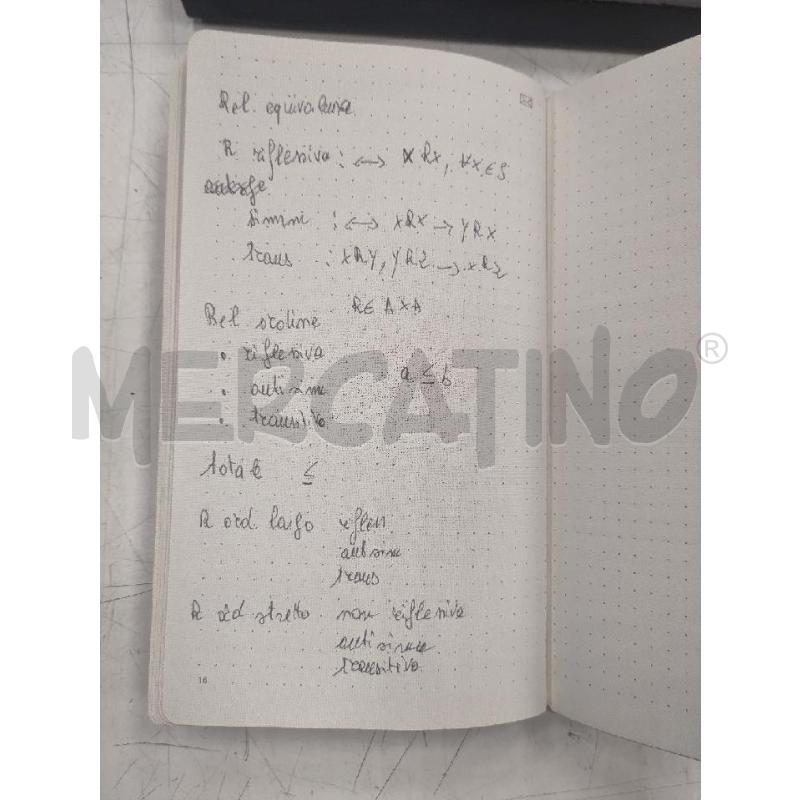 Rel. equivalenza
R riflessiva : ⟷ x Rx, ∀x ∈ S
simme : ⟷ xRx → yRx
trans : xRy, yRz → xRz
R ∈ A×A
Rel ordine
• riflessiva
• antisimm a ≤ b
• transitiva
totale ≤
R ord. largo rifless
antisim
trans
R ord stretto non riflessiva
antisimm
transitiva
16
MERCATINO®